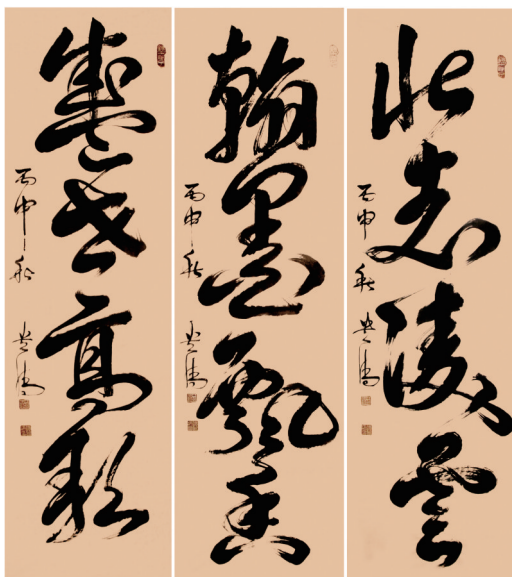 壮志凌云
丙申秋
翰墨飘香
丙申秋
盛世高歌
丙申秋